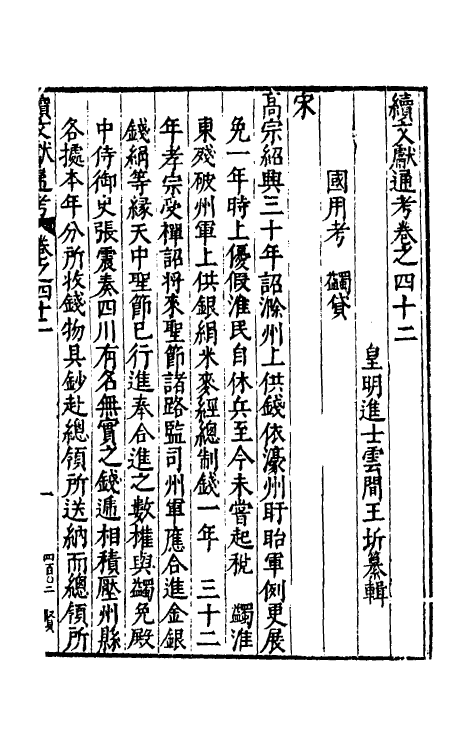 續文獻通考卷之四十二
皇明進士雲間王圻纂輯
國用考　蠲貸
宋
高宗紹興三十年詔滁州上供錢依濠州盱眙軍例更展
免一年時上優假淮民自休兵至今未嘗起稅　蠲淮
東殘破州軍上供銀絹米麥經總制錢一年　三十二
年孝宗受禪詔將來聖節諸路監司州軍應合進金銀
錢絹等緣天中聖節已行進奉合進之數權與蠲免殿
中侍御史張震奏四川有名無實之錢遞相積壓州縣
各據本年分所收錢物具鈔赴總領所送納而總領所
續文獻通考　卷之四十二
一
四百〇二　賢